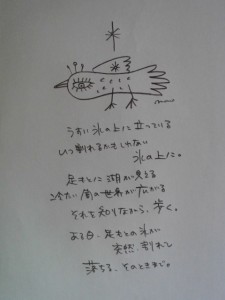 うすい氷の上に立っている
いつ割れるかもしれない
氷の上に。
足もとに湖が見える
冷たい闇の世界が広がる
それを知りながら、歩く。
ある日、足もとの氷が
突然割れて
落ちる、そのときまで。